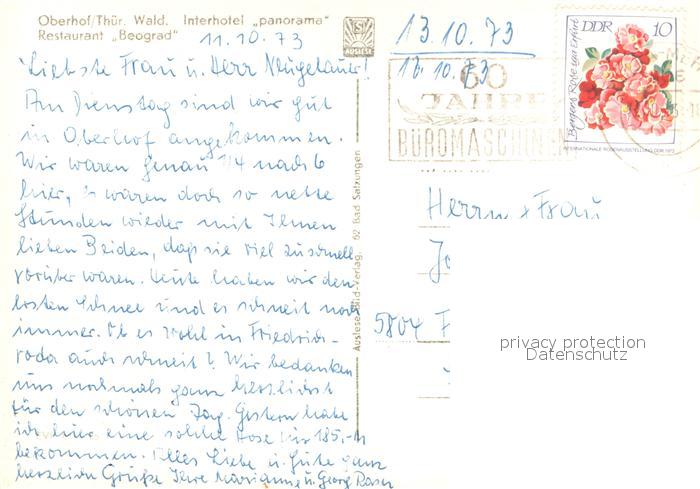 Oberhof/Thür. Wald. Interhotel „panorama"
Restaurant „Beograd"
11.10.73
Liebste Frau u. Herr
Am Dienstag sind wir gut
in Oberhof angekommen.
Wir waren genau 1/4 nach 6
hier, s waren doch so nette
Stunden wieder mit Ihnen
lieben Beiden, daß sie viel zu schnell
vorüber waren. Heute haben wir den
ersten Schnee und es schneit noch
immer. Ob es wohl in Friedrich-
roda auch schneit? Wir bedanken
uns nochmals ganz herzlichst
für den schönen Tag. Gestern habe
ich hier eine solche Hose für 185,-M
bekommen. Alles Liebe u. Gute ganz
herzliche Grüße Ihre Marianne u. Georg
Auslese-Bild-Verlag, 62 Bad Salzungen
AUSLESE
13.10.73
13.10.73
60
JAHRE
BÜROMASCHINEN
DDR 10
Bergers Rose aus Erfurt
INTERNATIONALE ROSENAUSSTELLUNG DDR 1972
Herrn + Frau
Jo
5804 F
privacy protection
Datenschutz